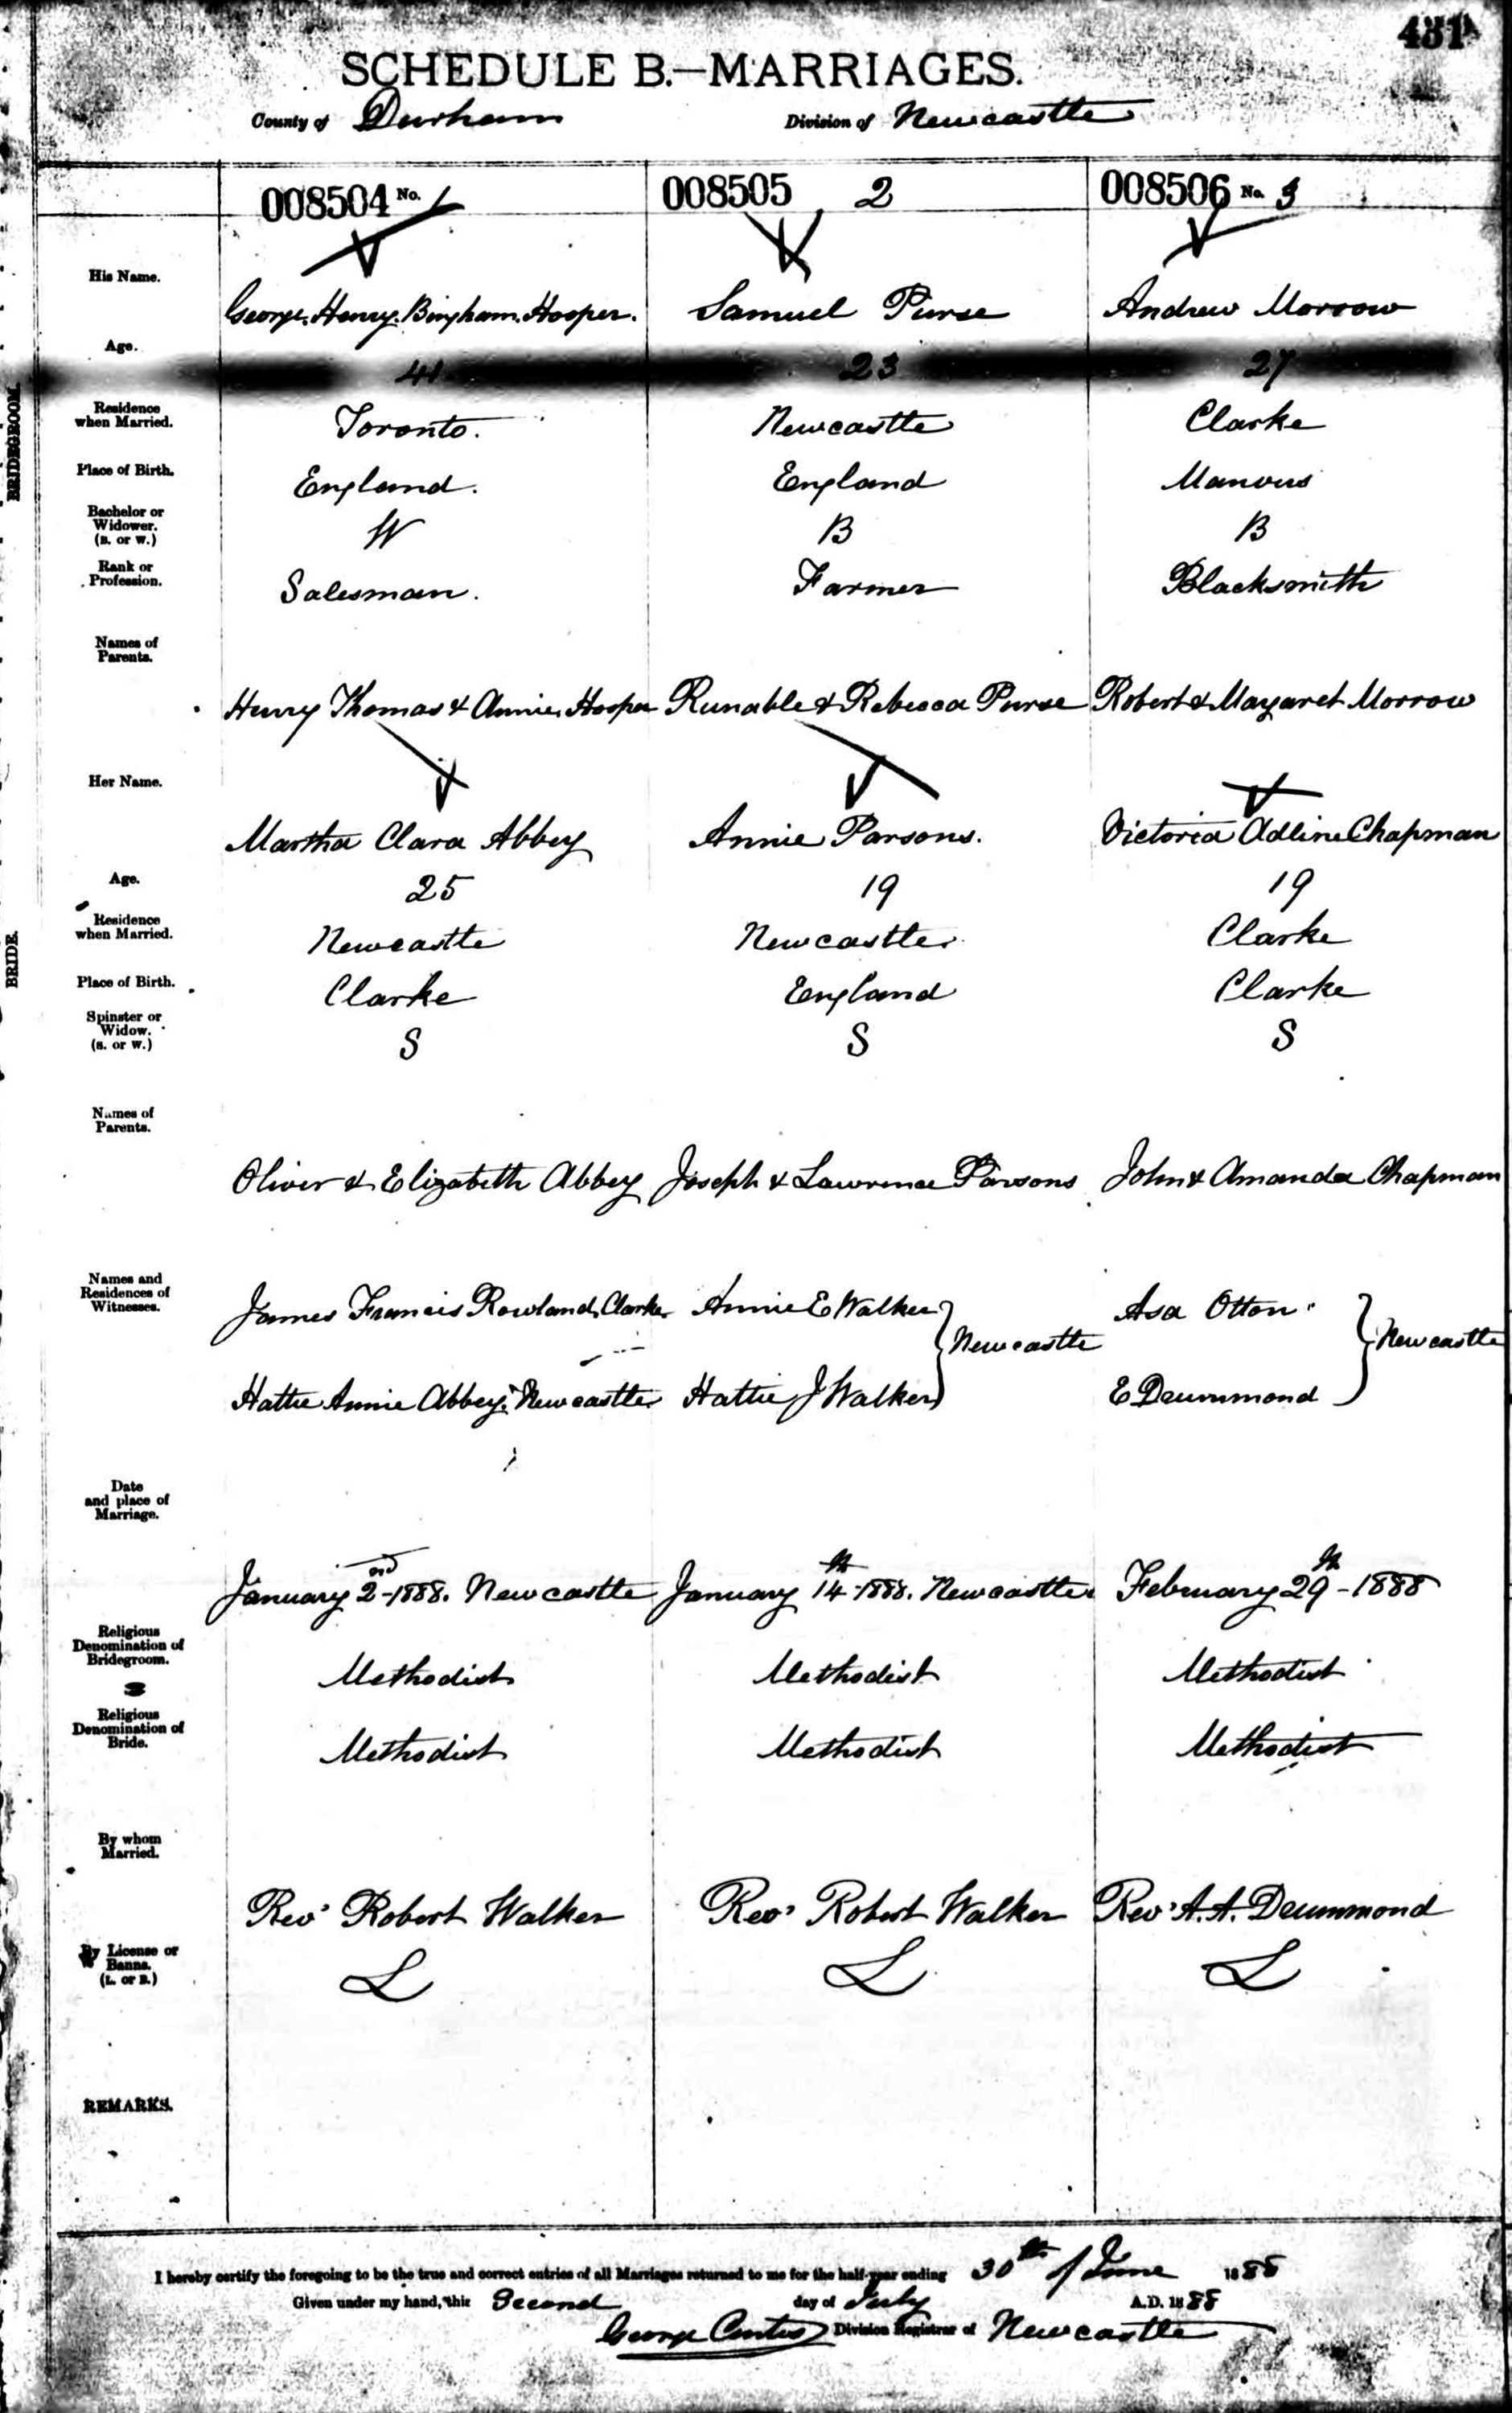 431
SCHEDULE B.—MARRIAGES.
County of Durham Division of Newcastle
008504 No. 1 008505 2 008506 No. 3
His Name. George Henry Bingham Hooper. Samuel Purse Andrew Morrow
Age. 41 23 27
BRIDEGROOM.
Residence when Married. Toronto. Newcastle Clarke
Place of Birth. England. England Manvers
Bachelor or Widower. (B. or W.) W B B
Rank or Profession. Salesman. Farmer Blacksmith
Names of Parents.
Henry Thomas & Annie Hooper Runable & Rebecca Purse Robert & Margaret Morrow
Her Name. Martha Clara Abbey Annie Parsons. Victoria Adline Chapman
Age. 25 19 19
BRIDE.
Residence when Married. Newcastle Newcastle Clarke
Place of Birth. Clarke England Clarke
Spinster or Widow. (S. or W.) S S S
Names of Parents.
Oliver & Elizabeth Abbey Joseph & Lawrence Parsons John & Amanda Chapman
Names and Residences of Witnesses. James Francis Rowland, Clarke Annie E Walker Asa Otton
Newcastle Newcastle
Hattie Annie Abbey, Newcastle Hattie J Walker E Drummond
Date and place of Marriage.
January 2nd-1888. Newcastle January 14th-1888. Newcastle February 29th-1888
Religious Denomination of Bridegroom. Methodist Methodist Methodist
Religious Denomination of Bride. Methodist Methodist Methodist
By whom Married.
Rev' Robert Walker Rev' Robert Walker Rev' A. A. Drummond
By License or Banns. (L. or B.) L L L
REMARKS.
I hereby certify the foregoing to be the true and correct entries of all Marriages returned to me for the half-year ending 30th of June 1888
Given under my hand, this Second day of July A.D. 1888
George Curtis Division Registrar of Newcastle